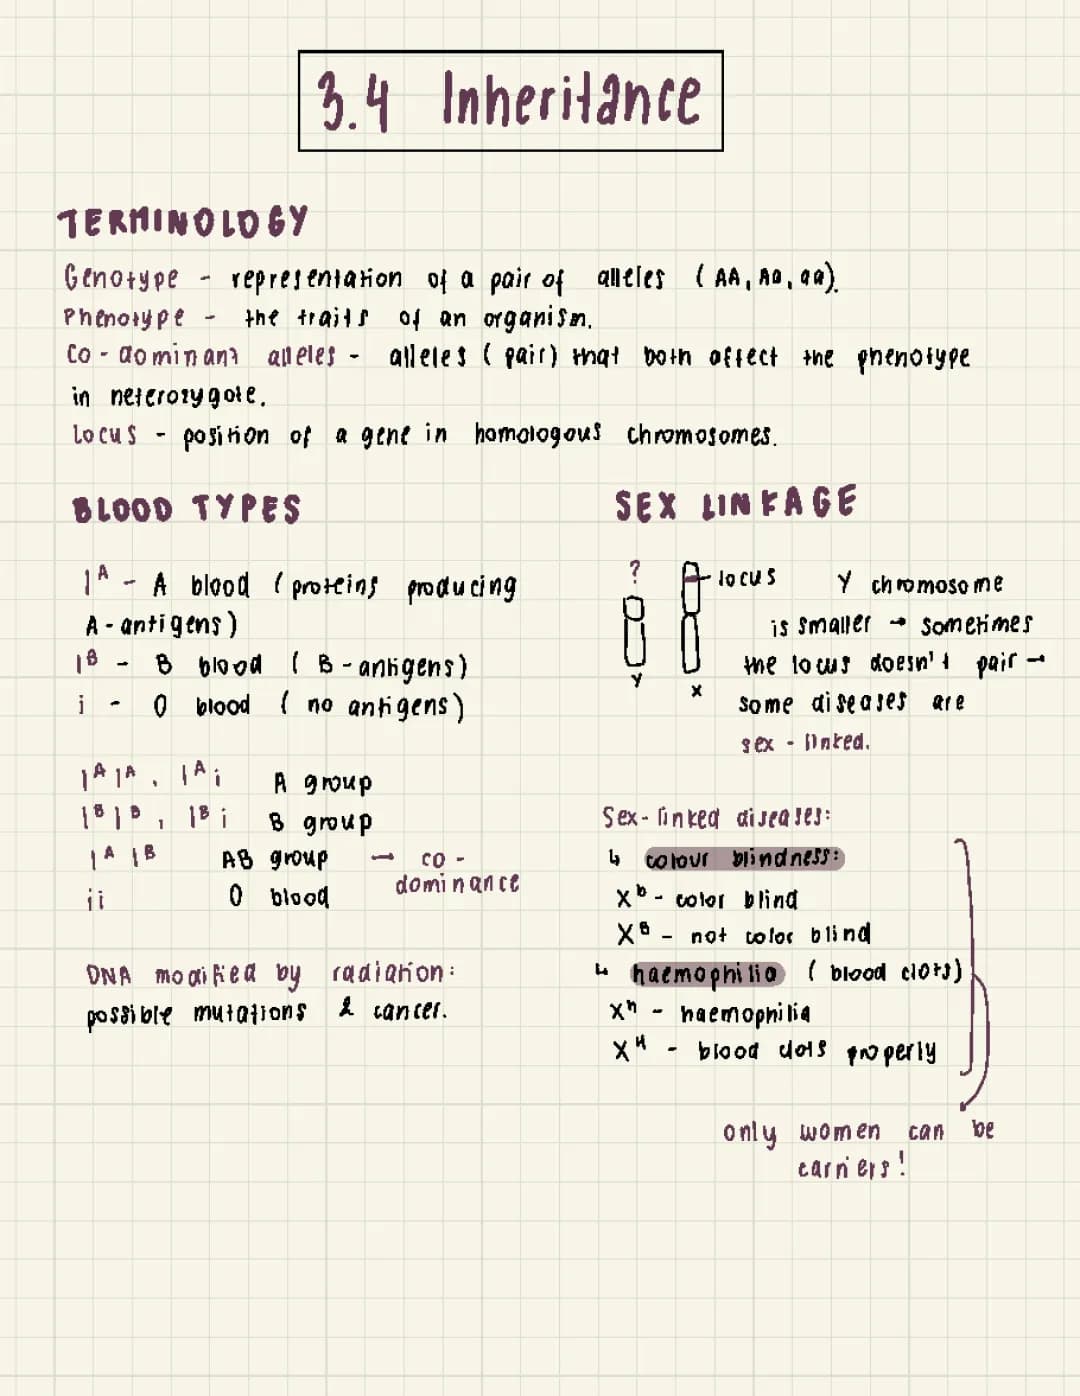 3.4 Inheritance
TERMINOLOGY
Genotype - representation of a pair of alleles (AA, Aa, aa).
Phenotype - the traits of an organism.
Co-dominant alleles - alleles (pair) that both affect the phenotype
in heterozygote.
Locus - position of a gene in homologous chromosomes.
BLOOD TYPES
Iᴬ - A blood (proteins producing
A-antigens)
Iᴮ - B blood (B-antigens)
i - O blood (no antigens)
IᴬIᴬ, Iᴬi A group
IᴮIᴮ, Iᴮi B group
IᴬIᴮ AB group → co-
dominance
ii O blood
DNA modified by radiation:
possible mutations & cancer.
SEX LINKAGE
?
locus
Y
X
Y chromosome
is smaller → sometimes
the locus doesn't pair →
some diseases are
sex-linked.
Sex-linked diseases:
↳ colour blindness:
Xᵇ - color blind
Xᴮ - not color blind
↳ haemophilia (blood clots)
Xʰ - haemophilia
Xᴴ - blood clots properly
only women can be
carriers!